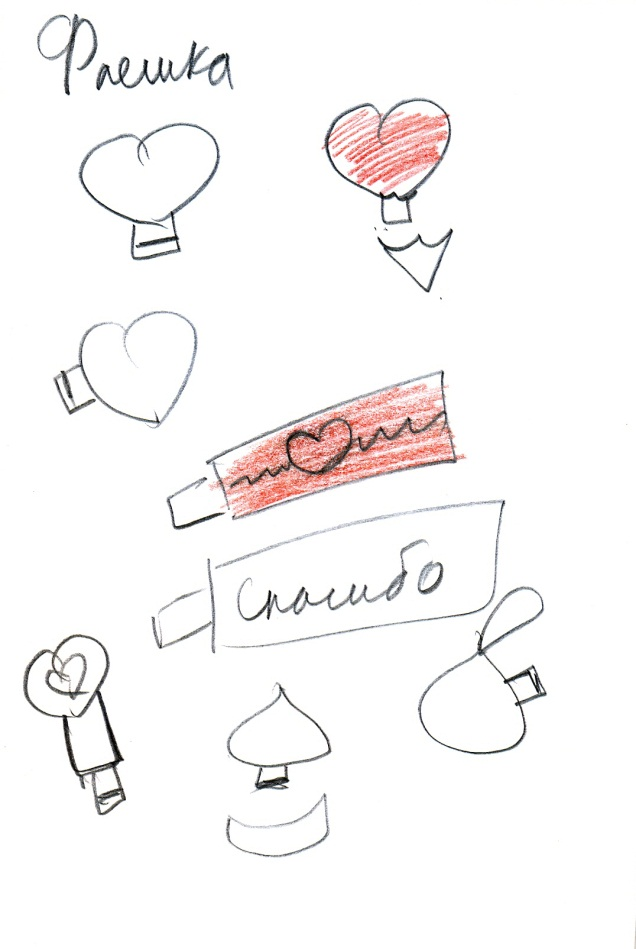 Флешка
Спасибо